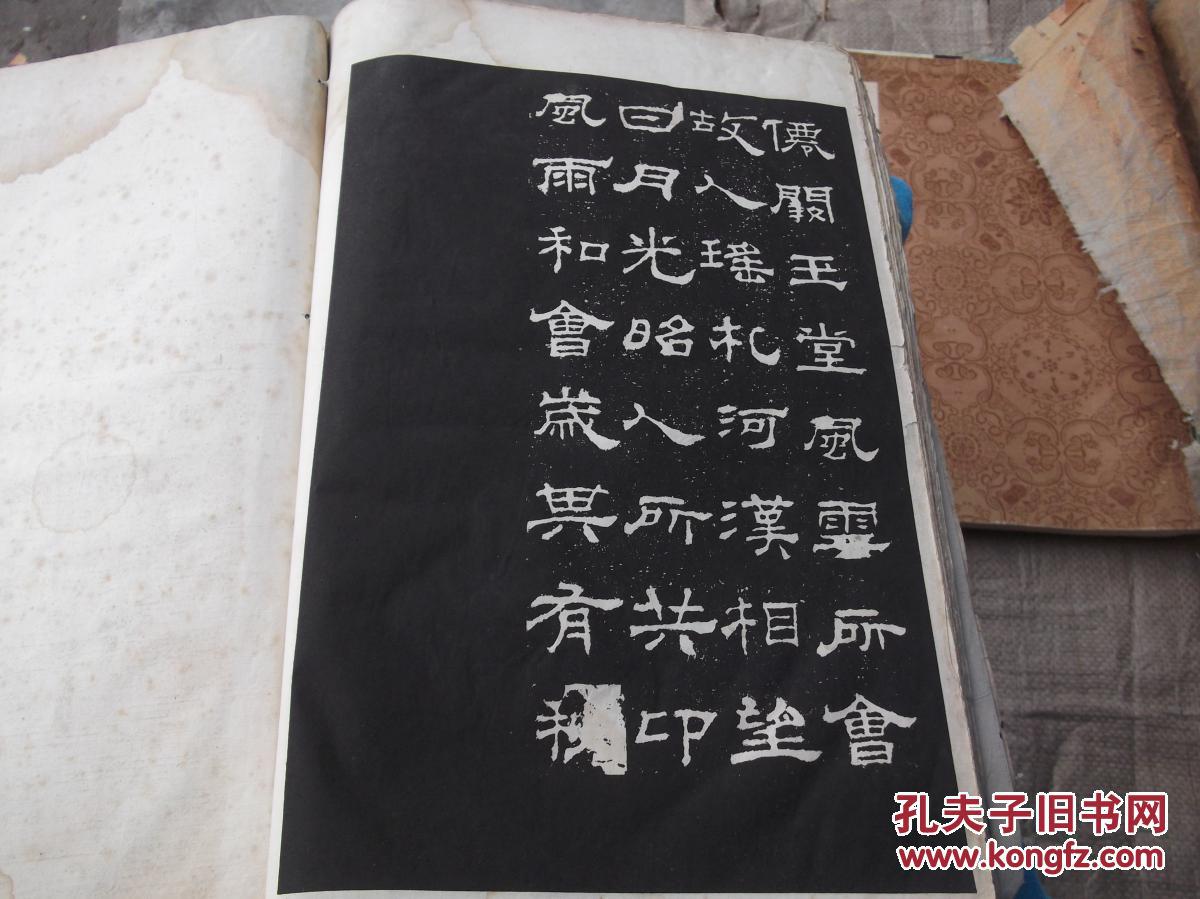 僊闕玉堂風雲所會
故人瑤札河漢相望
日月光昭人所共卬
風雨和會歲其有
孔夫子旧书网
www.kongfz.com